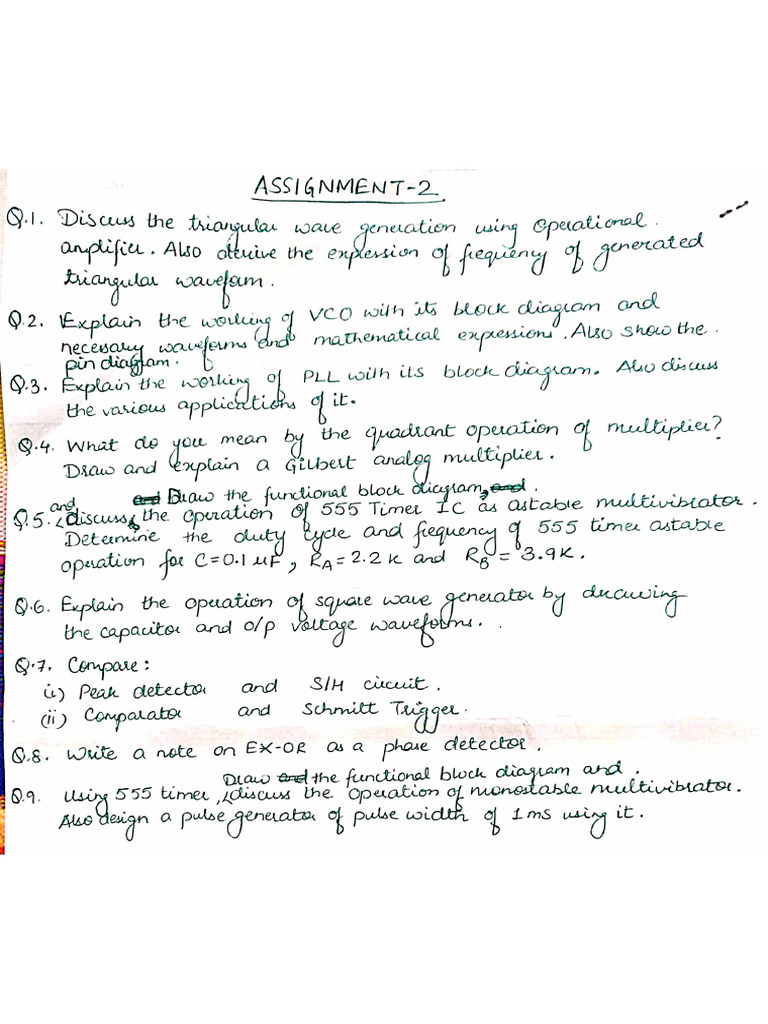 ASSIGNMENT-2
Q.1. Discuss the triangular wave generation using operational
amplifier. Also derive the expression of frequency of generated
triangular waveform.
Q.2. Explain the working of VCO with its block diagram and
necessary waveforms and mathematical expressions. Also show the
pin diagram.
Q.3. Explain the working of PLL with its block diagram. Also discuss
the various applications of it.
Q.4. What do you mean by the quadrant operation of multiplier?
Draw and explain a Gilbert analog multiplier.
and Draw the functional block diagram, and.
and
Q.5. discuss the operation of 555 Timer IC as astable multivibrator.
Determine the duty cycle and frequency of 555 timer astable
operation for C=0.1 μF, RA = 2.2 K and RB = 3.9K.
Q.6. Explain the operation of square wave generator by drawing
the capacitor and o/p voltage waveforms.
Q.7. Compare:
(i) Peak detector and S/H circuit.
(ii) Comparator and Schmitt Trigger.
Q.8. Write a note on EX-OR as a phase detector.
Draw and the functional block diagram and.
Q.9. Using 555 timer, discuss the operation of monostable multivibrator.
Also design a pulse generator of pulse width of 1 ms using it.